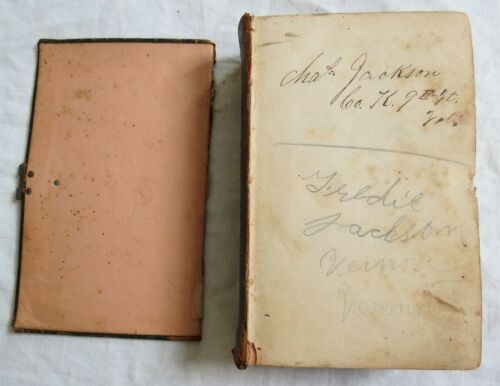 Chas Jackson
Co. K. 9th Vt.
Vol.
Freddie
Jackson
Vernon
Vermont